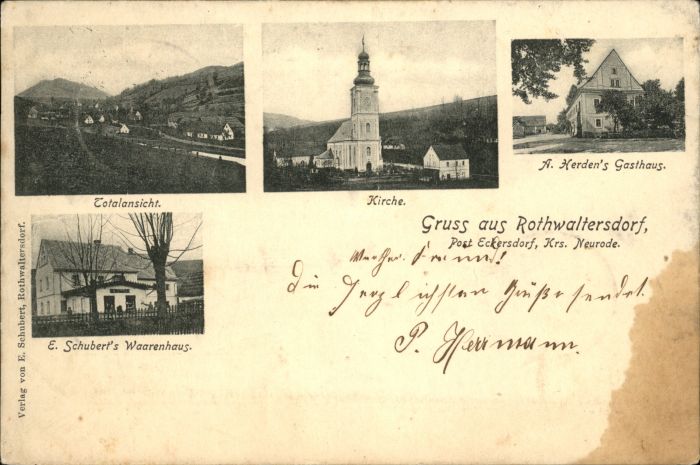 Totalansicht.
Kirche.
A. Herden's Gasthaus.
Gruss aus Rothwaltersdorf,
Post Eckersdorf, Krs. Neurode.
Werther Freund!
Die herzlichsten Grüße sendet
P. Herrmann.
E. Schubert's Waarenhaus.
Verlag von E. Schubert, Rothwaltersdorf.